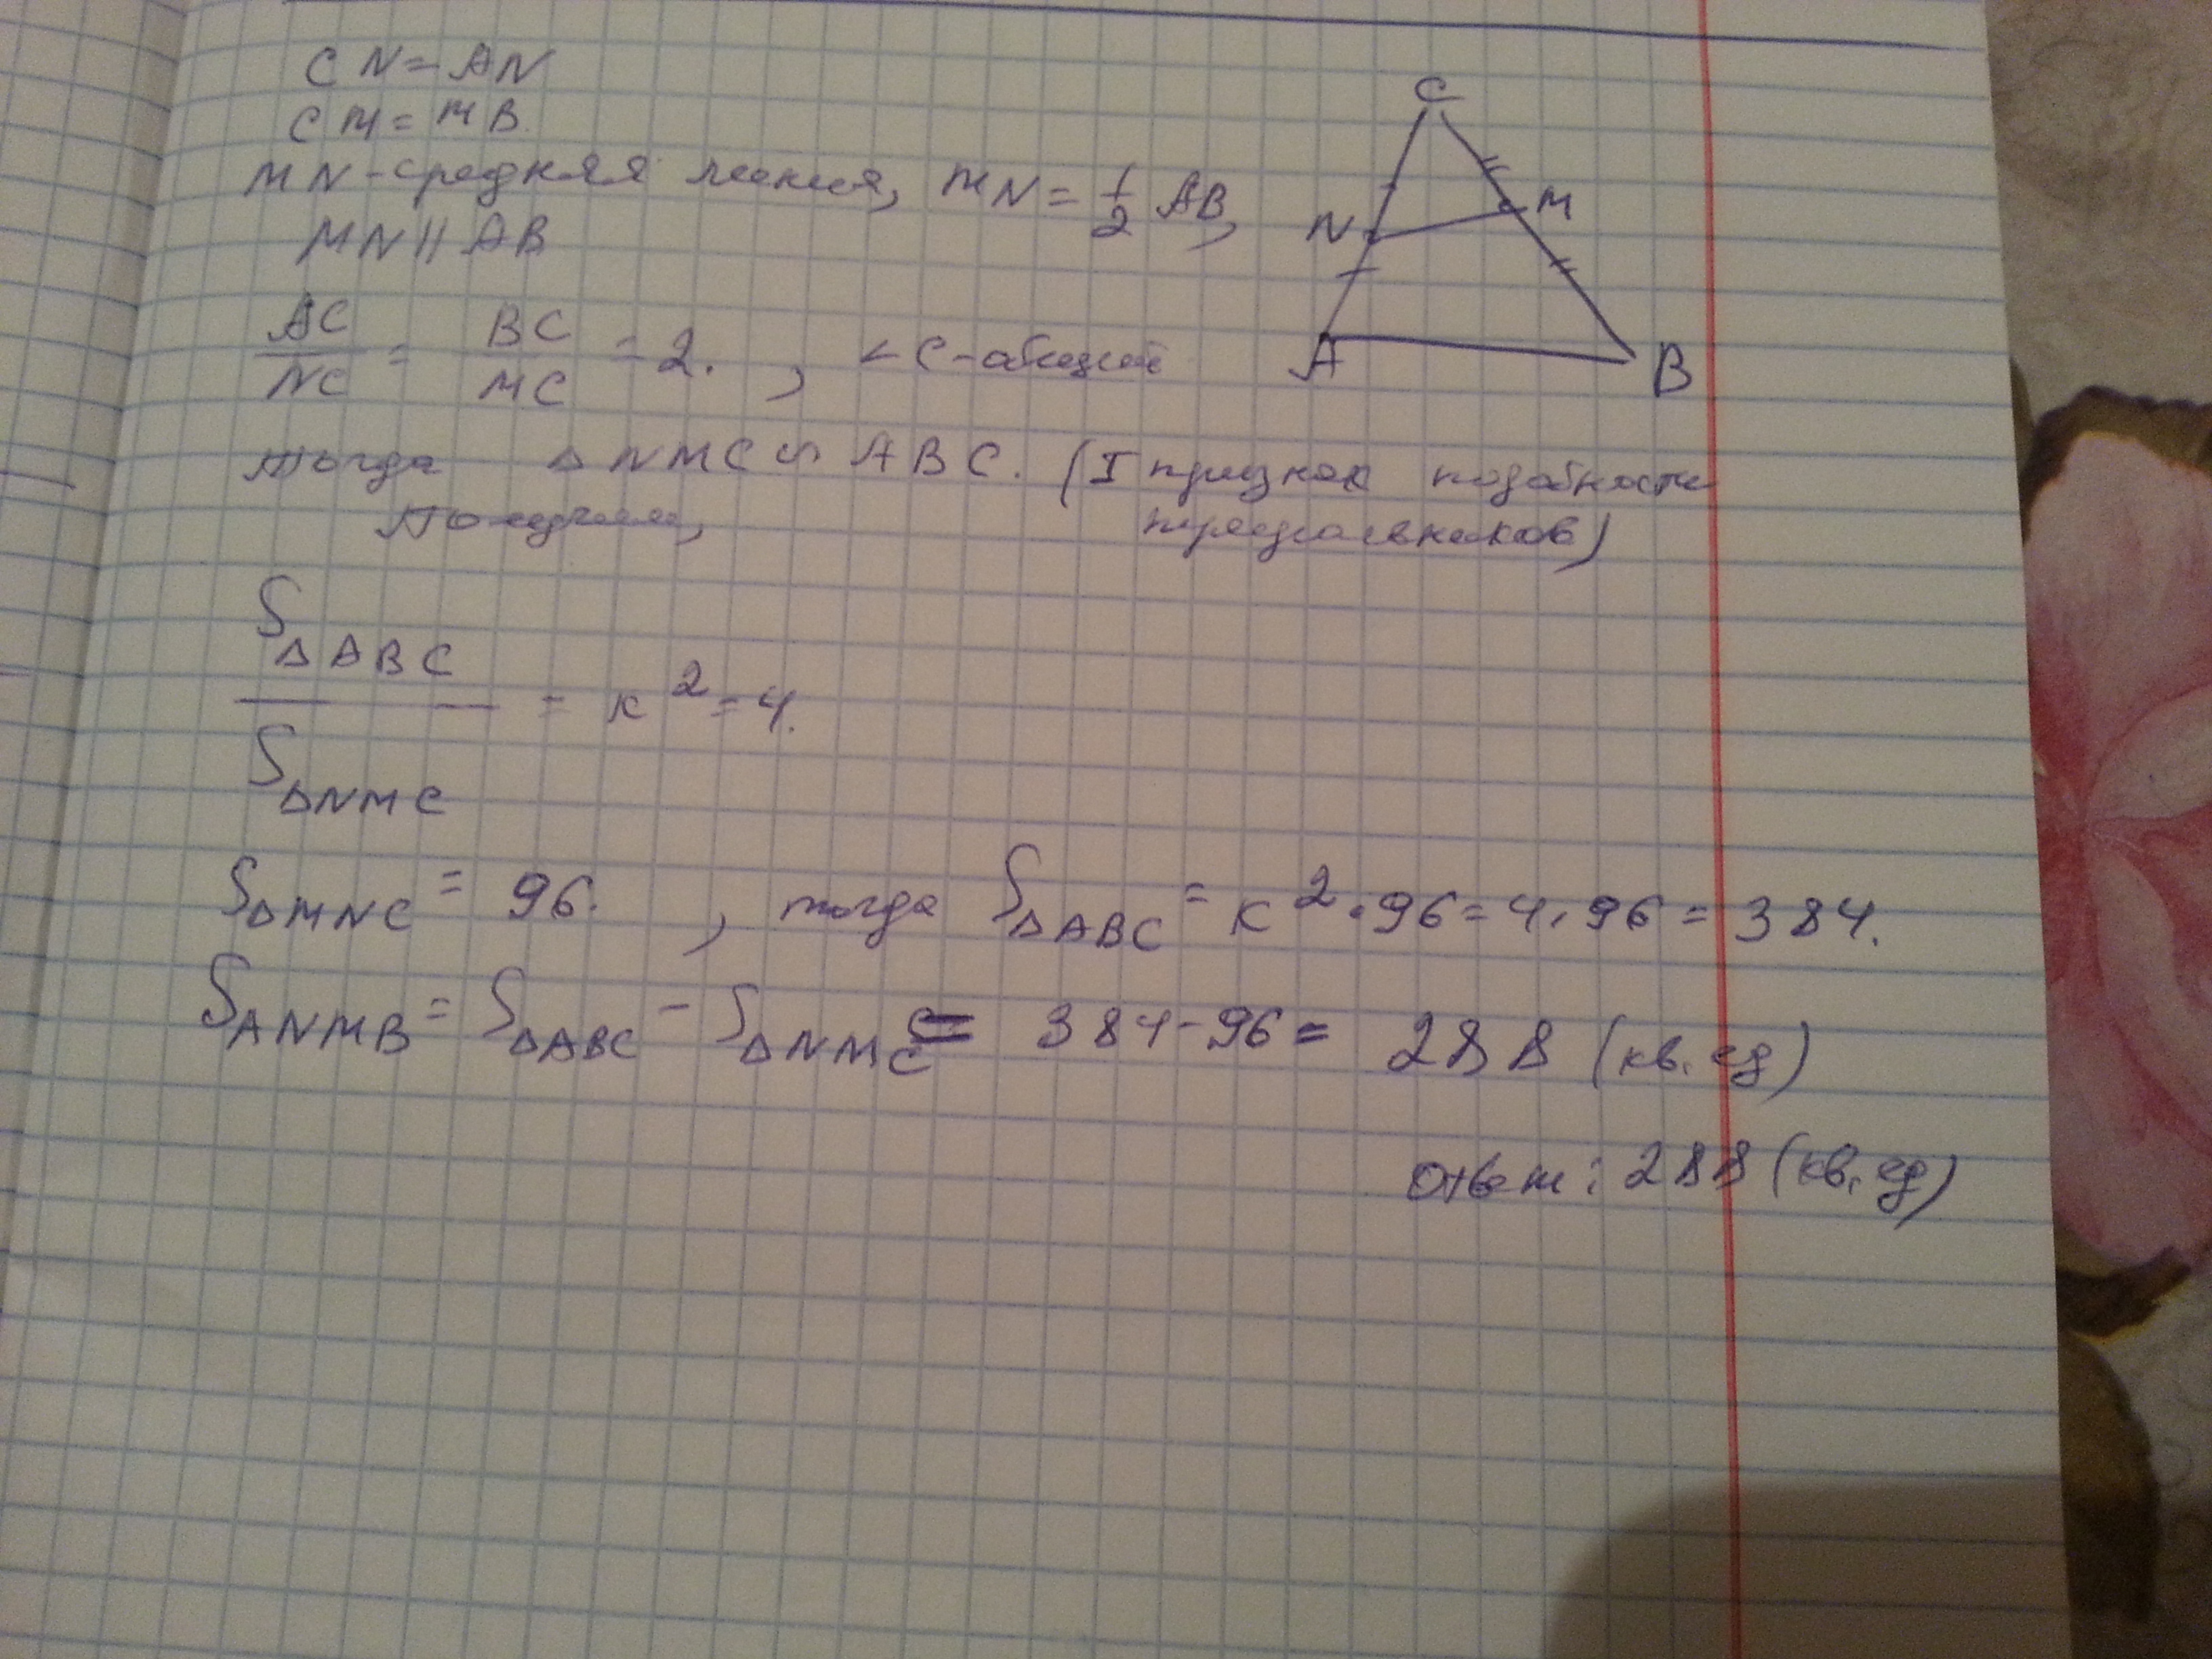 CN = AN
CM = MB
MN - средняя линия, MN = 1/2 AB,
MN || AB
AC/NC = BC/MC = 2. , ∠C - общий
тогда △NMC ∽ ABC. (I признак подобности
Получим, треугольников)
S△ABC / S△NMC = к² = 4.
S△MNC = 96. , тогда S△ABC = к² · 96 = 4 · 96 = 384.
SANMB = S△ABC - S△NMC = 384 - 96 = 288 (кв. ед)
Ответ: 288 (кв. ед)
C
N
M
A
B